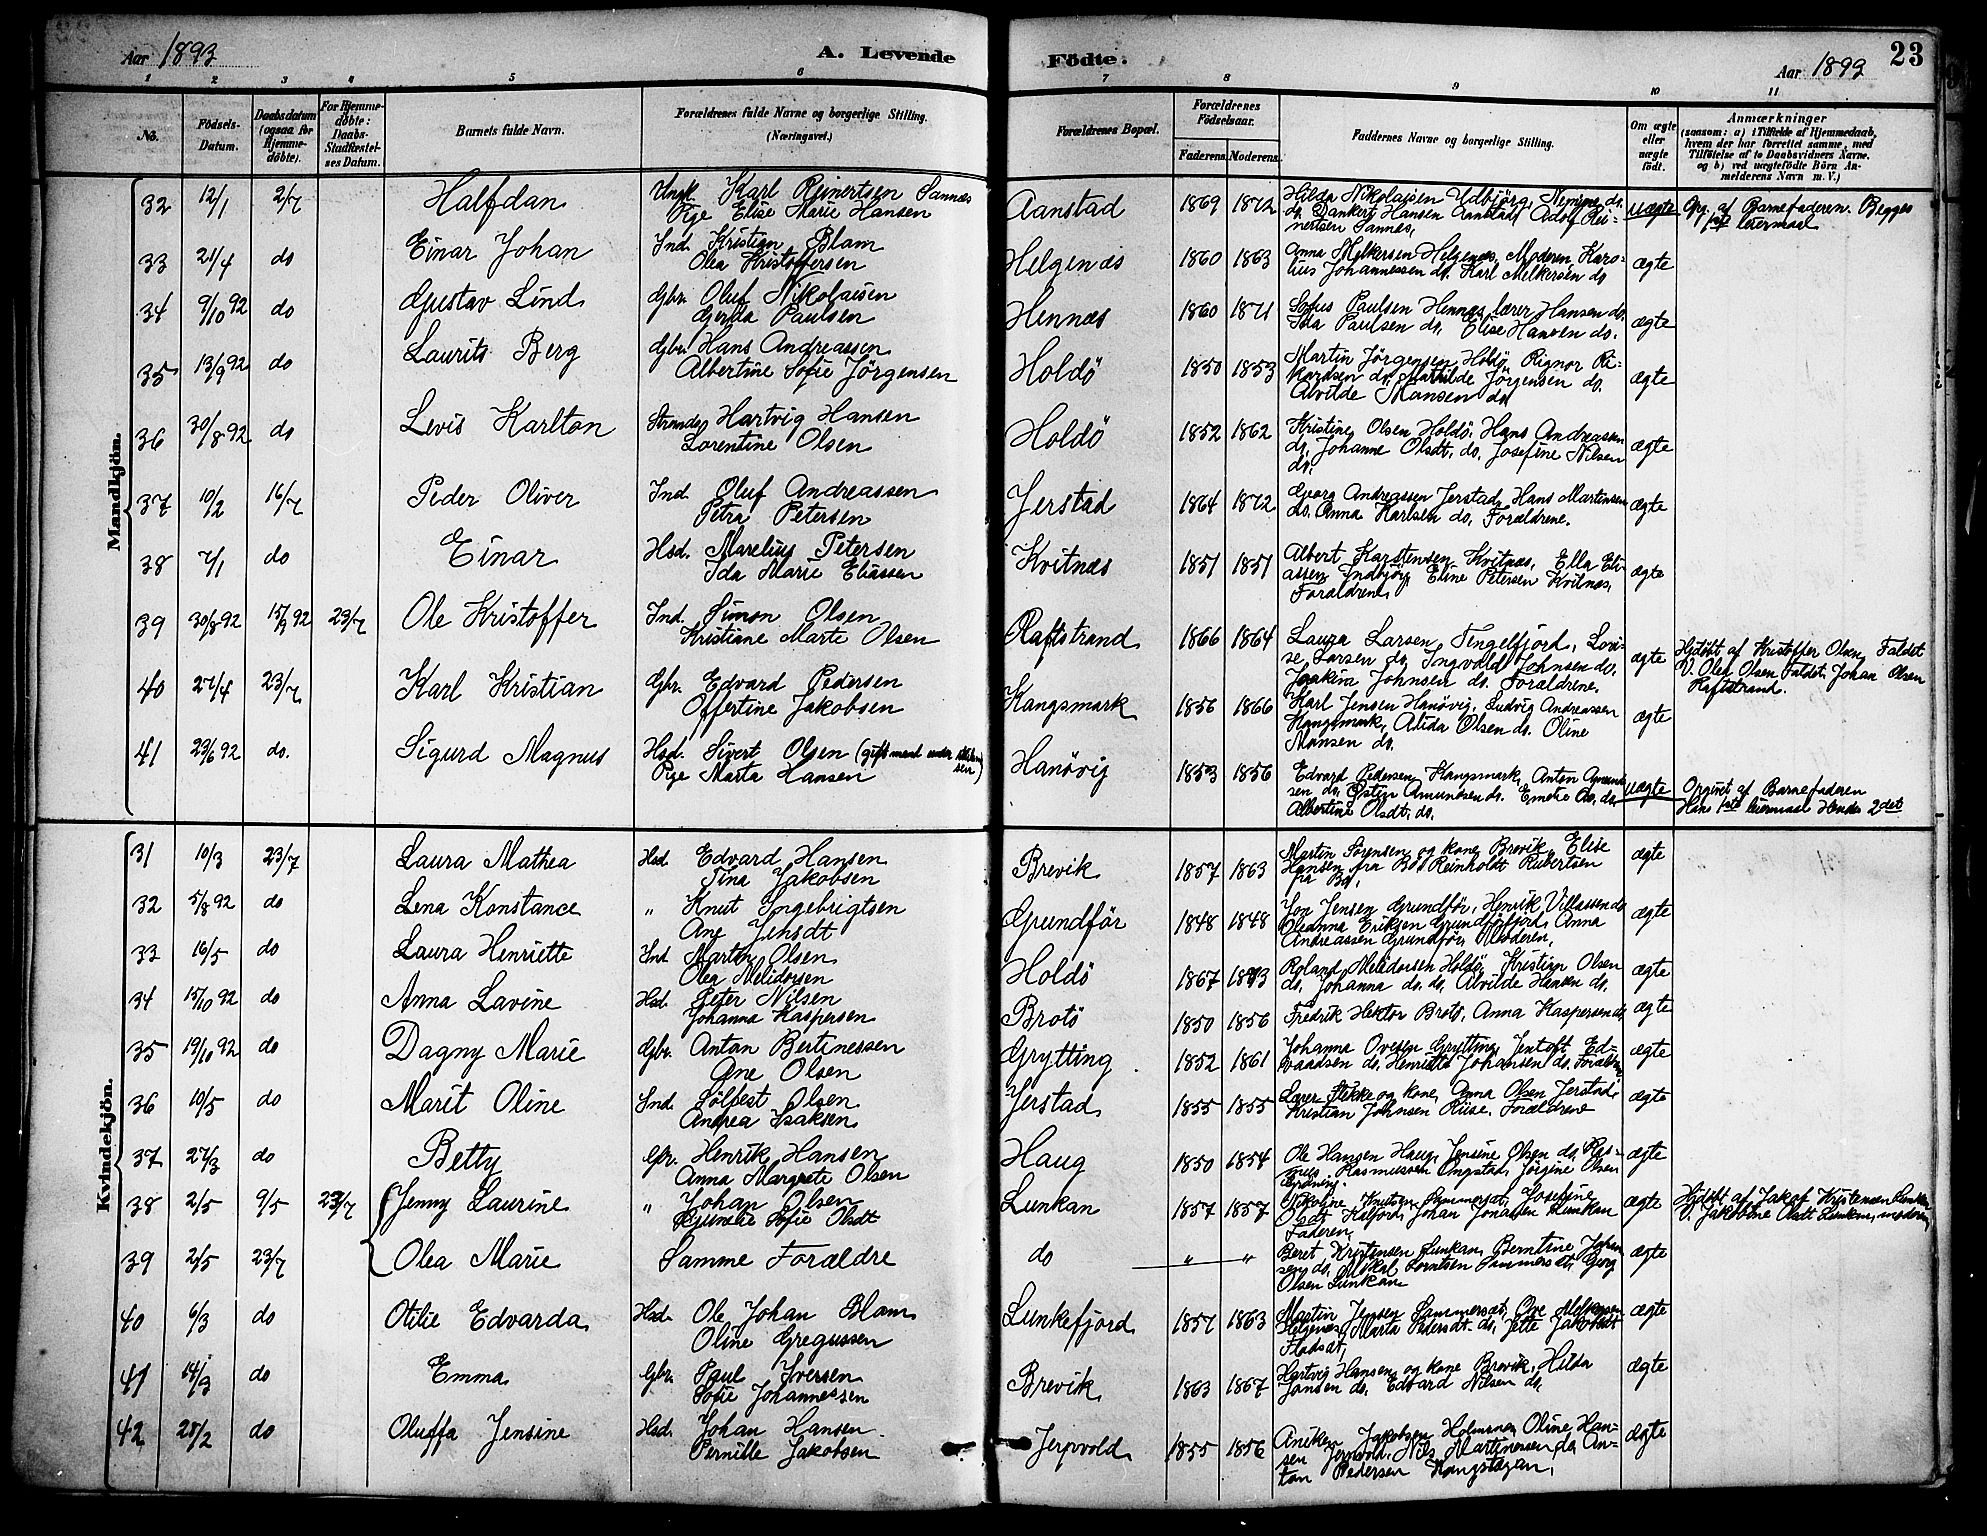 Aar 1893
A. Levende
Födte.
Aar 1893
23
1 2 3 4 5 6 7 8 9 10 11
No.
Födsels-
Datum.
Daabsdatum
(ogsaa for
Hjemme-
döbte).
For Hjemme-
döbte:
Daabs-
Stadfæstel-
ses Datum.
Barnets fulde Navn.
Forældrenes fulde Navne og borgerlige Stilling.
(Næringsvei.)
Forældrenes Bopæl.
Forældrenes
Födselsaar.
Faderens. Moderens.
Faddernes Navne og borgerlige Stilling.
Om ægte
eller
uægte
födt.
Anmærkninger
(saasom: a) i Tilfælde af Hjemmedaab,
hvem der har forrettet samme, med
Tilföielse af to Daabsvidners Navne.
og b) ved uægtefödte Börn An-
melderens Navn m. V.)
Mandkjön.
32 12/1 2/7 Halfdan Ungk. Karl Reinertsen Sannæs
Pige Elise Marie Hansen
Aanstad 1869 1872 Hilda Nikolaisen
do. Dankert Hansen Aanstad, Adolf Rei-
nertsen Sannæs,
uægte Opg. af Barnefaderen. Begges
1ste leiermaal
33 21/4 do Einar Johan Ind. Kristian Blam
Olea Kristoffersen
Helgenæs 1860 1863 Anna Melkersen Helgenæs, Moderen, Karo-
lius Johannessen do. Karl Melkersen do
ægte
34 9/10 92 do Gustav Lind Gbr. Oluf Nikolaisen
Gerda Paulsen
Hennæs 1860 1871 Sofus Paulsen Hennæs, lærer Hansen do.
Ida Paulsen do, Elise Hansen do.
ægte
35 13/9 92 do Laurits Berg Gbr. Hans Andreassen
Albertine Sofie Jörgensen
Holdö 1850 1853 Martin Jörgensen Holdö, Rignor Ri-
kardsen do. Mathilde Jörgensen do.
Alvilde Hansen do
ægte
36 30/8 92 do Levis Karlton Strands. Hartvig Hansen
Lorentine Olsen
Holdö 1852 1862 Kristine Olsen Holdö. Hans Andreassen
do, Johanne Olsdt. do. Josefine Nilsen
do.
ægte
37 10/2 16/7 Peder Oliver Ind. Oluf Andreassen
Petra Petersen
Jerstad 1864 1872 Georg Andreassen Jerstad, Hans Martinsen
do. Anna Karlsen do. Forældrene.
ægte
38 7/1 do Einar Hsd. Marelius Petersen
Ida Marie Eliassen
Kvitnæs 1851 1851 Albert Karstensen Kvitnæs, Ella Eli-
assen Indbjör, Eline Petersen Kvitnæs,
Forældrene
ægte
39 30/8 92 15/9 92 23/7 Ole Kristoffer Ind. Simon Olsen
Kristiane Marte Olsen
Raftstrand 1866 1864 Laura Larsen Tengelfjord, Lovi-
se Larsen do. Ingvald Johnsen do.
Joakim Johnsen do. Forældrene.
ægte Hjdöbt af Kristoffer Olsen Faldet
V. Olea Olsen Faldet. Johan Olsen
Raftstrand.
40 27/4 23/7 Karl Kristian Gbr. Edvard Pedersen
Offertine Jakobsen
Kangsmark 1856 1866 Karl Jensen Hanövig, Ludvig Andreassen
Kangsmark, Alida Olsen do. Oline
Hansen do.
ægte
41 23/6 92 do. Sigurd Magnus Hsd. Sivert Olsen (gift mand
Pige Marta Hansen
Hanövig 1853 1856 Edvard Pedersen Kangsmark, Anton Amund-
sen do. Amundsen do. Emelie do.
Albertine Olsdt. do.
uægte Opgivet af Barnefaderen
Hans 1ste leiermaal Hendes 2det
Kvindekjön.
31 10/3 23/7 Laura Mathea Hsd Edvard Hansen
Tina Jakobsen
Brevik 1857 1863 Martin Sørensen og kone Brevik, Elise
Hansen fra Bø, Reinholdt Rubertsen
fra Bø.
ægte
32 5/8 92 do Lena Konstance " Knut Ingebrigtsen
Ane Jensdt
Grundför 1848 1848 Jon Jensen Grundför, Henrik Villassen do
Oleanna Eriksen Grundförfjord, Anna
Andreassen Grundför, Moderen.
ægte
33 16/5 do Laura Henriette Ind Martin Olsen
Olea Melidorsen
Holdö 1867 1873 Roland Melidorsen Holdö, Kristian Olsen
do, Johanna do. do. Alvilde Hansen do.
ægte
34 15/10 92 do Anna Lavine Hsd. Peter Nilsen
Johanna Kaspersen
Brotö 1850 1856 Fredrik Hektor Brotö. Anna Kaspersen do
ægte
35 19/10 92 do Dagny Marie Gbr. Anton Bertinessen
Ane Olsen
Grytting 1852 1861 Johanna Ovesen Grytting, Jentoft Ed-
vardsen do. Henriette Johansen do. Forældrene
ægte
36 10/5 do Marit Oline Ind. Sölfest Olsen
Andrea Isaksen
Jerstad 1855 1855 Lærer Flekke og kone, Anna Olsen Jerstad,
Kristian Johnsen Riise. Forældrene
ægte
37 27/3 do Betty Gbr. Henrik Hansen
Anna Margrete Olsen
Haug 1850 1854 Ole Hansen Haug, Jensine Olsen do. Ras-
mus Rasmussen Ongstad, Jörgine Olsen
ægte
38 2/5 9/5 23/7 Jenny Laurine " Johan Olsen
Sofie Olsdt
Lunkan 1857 1857 Nikoline Knutsen Sommersæt, Josefine
Olsdt Kalfjord, Johan Jonassen Lunkan
Faderen.
ægte Hjdöbt af Jakob Kristensen Lunkan
V. Jakobine Olsdt Lunkan, moderen
39 2/5 23/7 Olea Marie Samme Forældre
do " " Beret Kristensen Lunkan, Berntine Johan
sen do, Mikal Lorntsen Sommersæt, Georg
Olsen Lunkan
ægte
40 6/3 do Otilie Edvarda Hsd. Ole Johan Blam
Oline Gregussen
Lunkefjord 1857 1863 Martin Jensen Sommersæt, Ove Melkersen
Helgenæs, Marta Pedersdt. do, Jette Jakobsdt
Fladsæt,
ægte
41 14/3 do Emma Gbr. Paul Iversen
Sofie Johannessen
Brevik 1863 1867 Hartvig Hansen og kone Brevik, Hilda
Jansen do. Edvard Nilsen do.
ægte
42 28/2 do Oluffa Jensine Hsd. Johan Hansen
Pernille Jakobsen
Jerpvold 1855 1856 Aniken Jakobsen Holmsnæs, Oline Han-
sen Jerpvold, Nils Martinessen do, An-
ton Pedersen
ægte